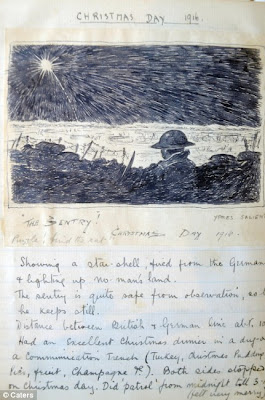 CHRISTMAS DAY 1916.
"THE SENTRY"
CHRISTMAS DAY 1916.
Showing a star-shell, fired from the German
& lighting up no man's land.
The sentry is quite safe from observation, so
he keeps still.
Distance between British & German line abt.
Had an Excellent Christmas dinner in a dug-
a Communication Trench (Turkey, Christmas Pudding
Pies, fruit, Champagne &c). Both sides stopped
on Christmas day. Did 'patrol' from midnight till 5
(felt very merry
© Caters